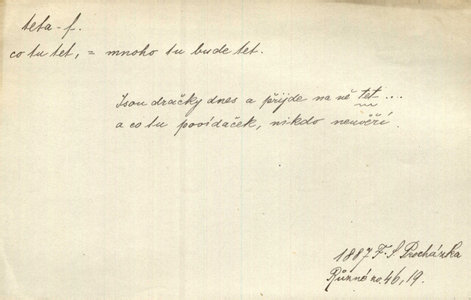 teta - f.
co tu tet, = mnoho tu bude tet.
Jsou dračky dnes a přijde na ně tet ...
a co tu povídaček, nikdo neuvěří.
1887 F. S Procházka
Různé no. 46, 19.